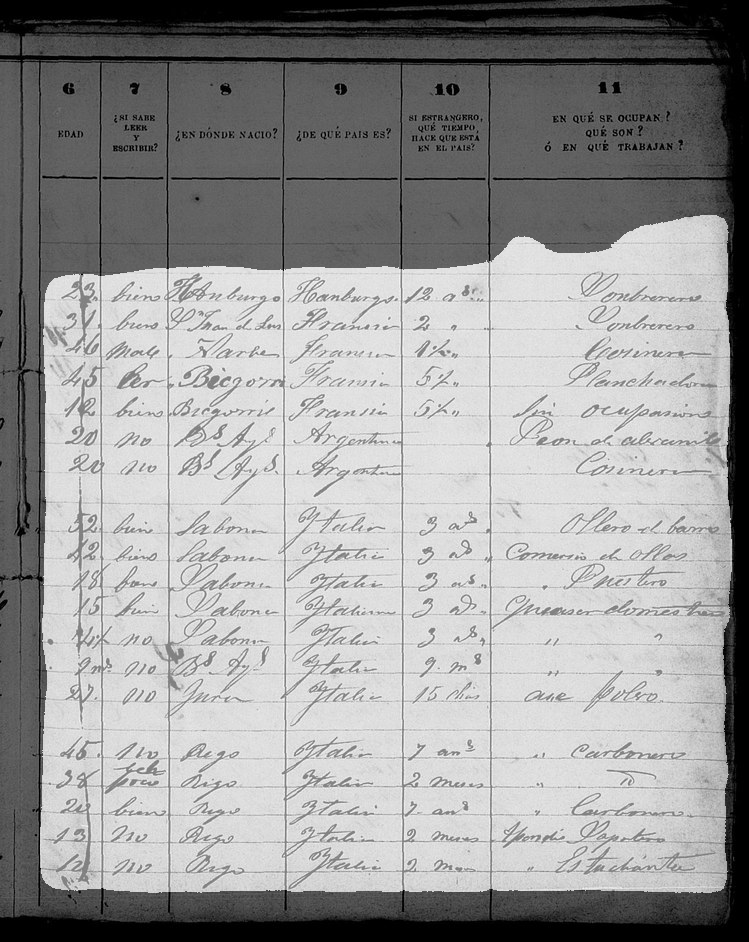 6 7 8 9 10 11
EDAD ¿SI SABE LEER Y ESCRIBIR? ¿EN DÓNDE NACIO? ¿DE QUÉ PAIS ES? SI ESTRANGERO, QUÉ TIEMPO HACE QUE ESTÁ EN EL PAIS? EN QUÉ SE OCUPAN? QUÉ SON? Ó EN QUÉ TRABAJAN?
23. biens Hanburgo Hanburgo. 12 as
31. biens Sn Juan d Lus Fransia 2 „
46 Fransia Cosinera
45 Ler Biegorri Fransia 5½ Planchadora
12 biens Biegorrie Fransia 5½ sin ocupasions
20 no Bs Ays Argentina Peon de
20 no Bs Ays Argentina Cosinera
52. bien Sabona Ytalia 3 as Ollero d barro
42. biens Sabona Ytalia 3 as Comersio d ollas
18 biens Sabona Ytalia 3 as „ Puestero
15 bien Sabona Ytaliana 3 as
no Sabona Ytalia 3 as „ „
9 ms no Bs Ays Ytalia 9. ms „ „
27. no Ytalia 15 dias polero.
45. no Rego Ytalia 7 ans „ Carbonero
38 poco Rigo Ytalia 2 meses „ ID
20 biens Rego Ytalia 7 ans „ Carbonero.
13 no Rego Ytalia 2 meses Sapatero
12 no Rego Ytalia 2. „ Estudiante